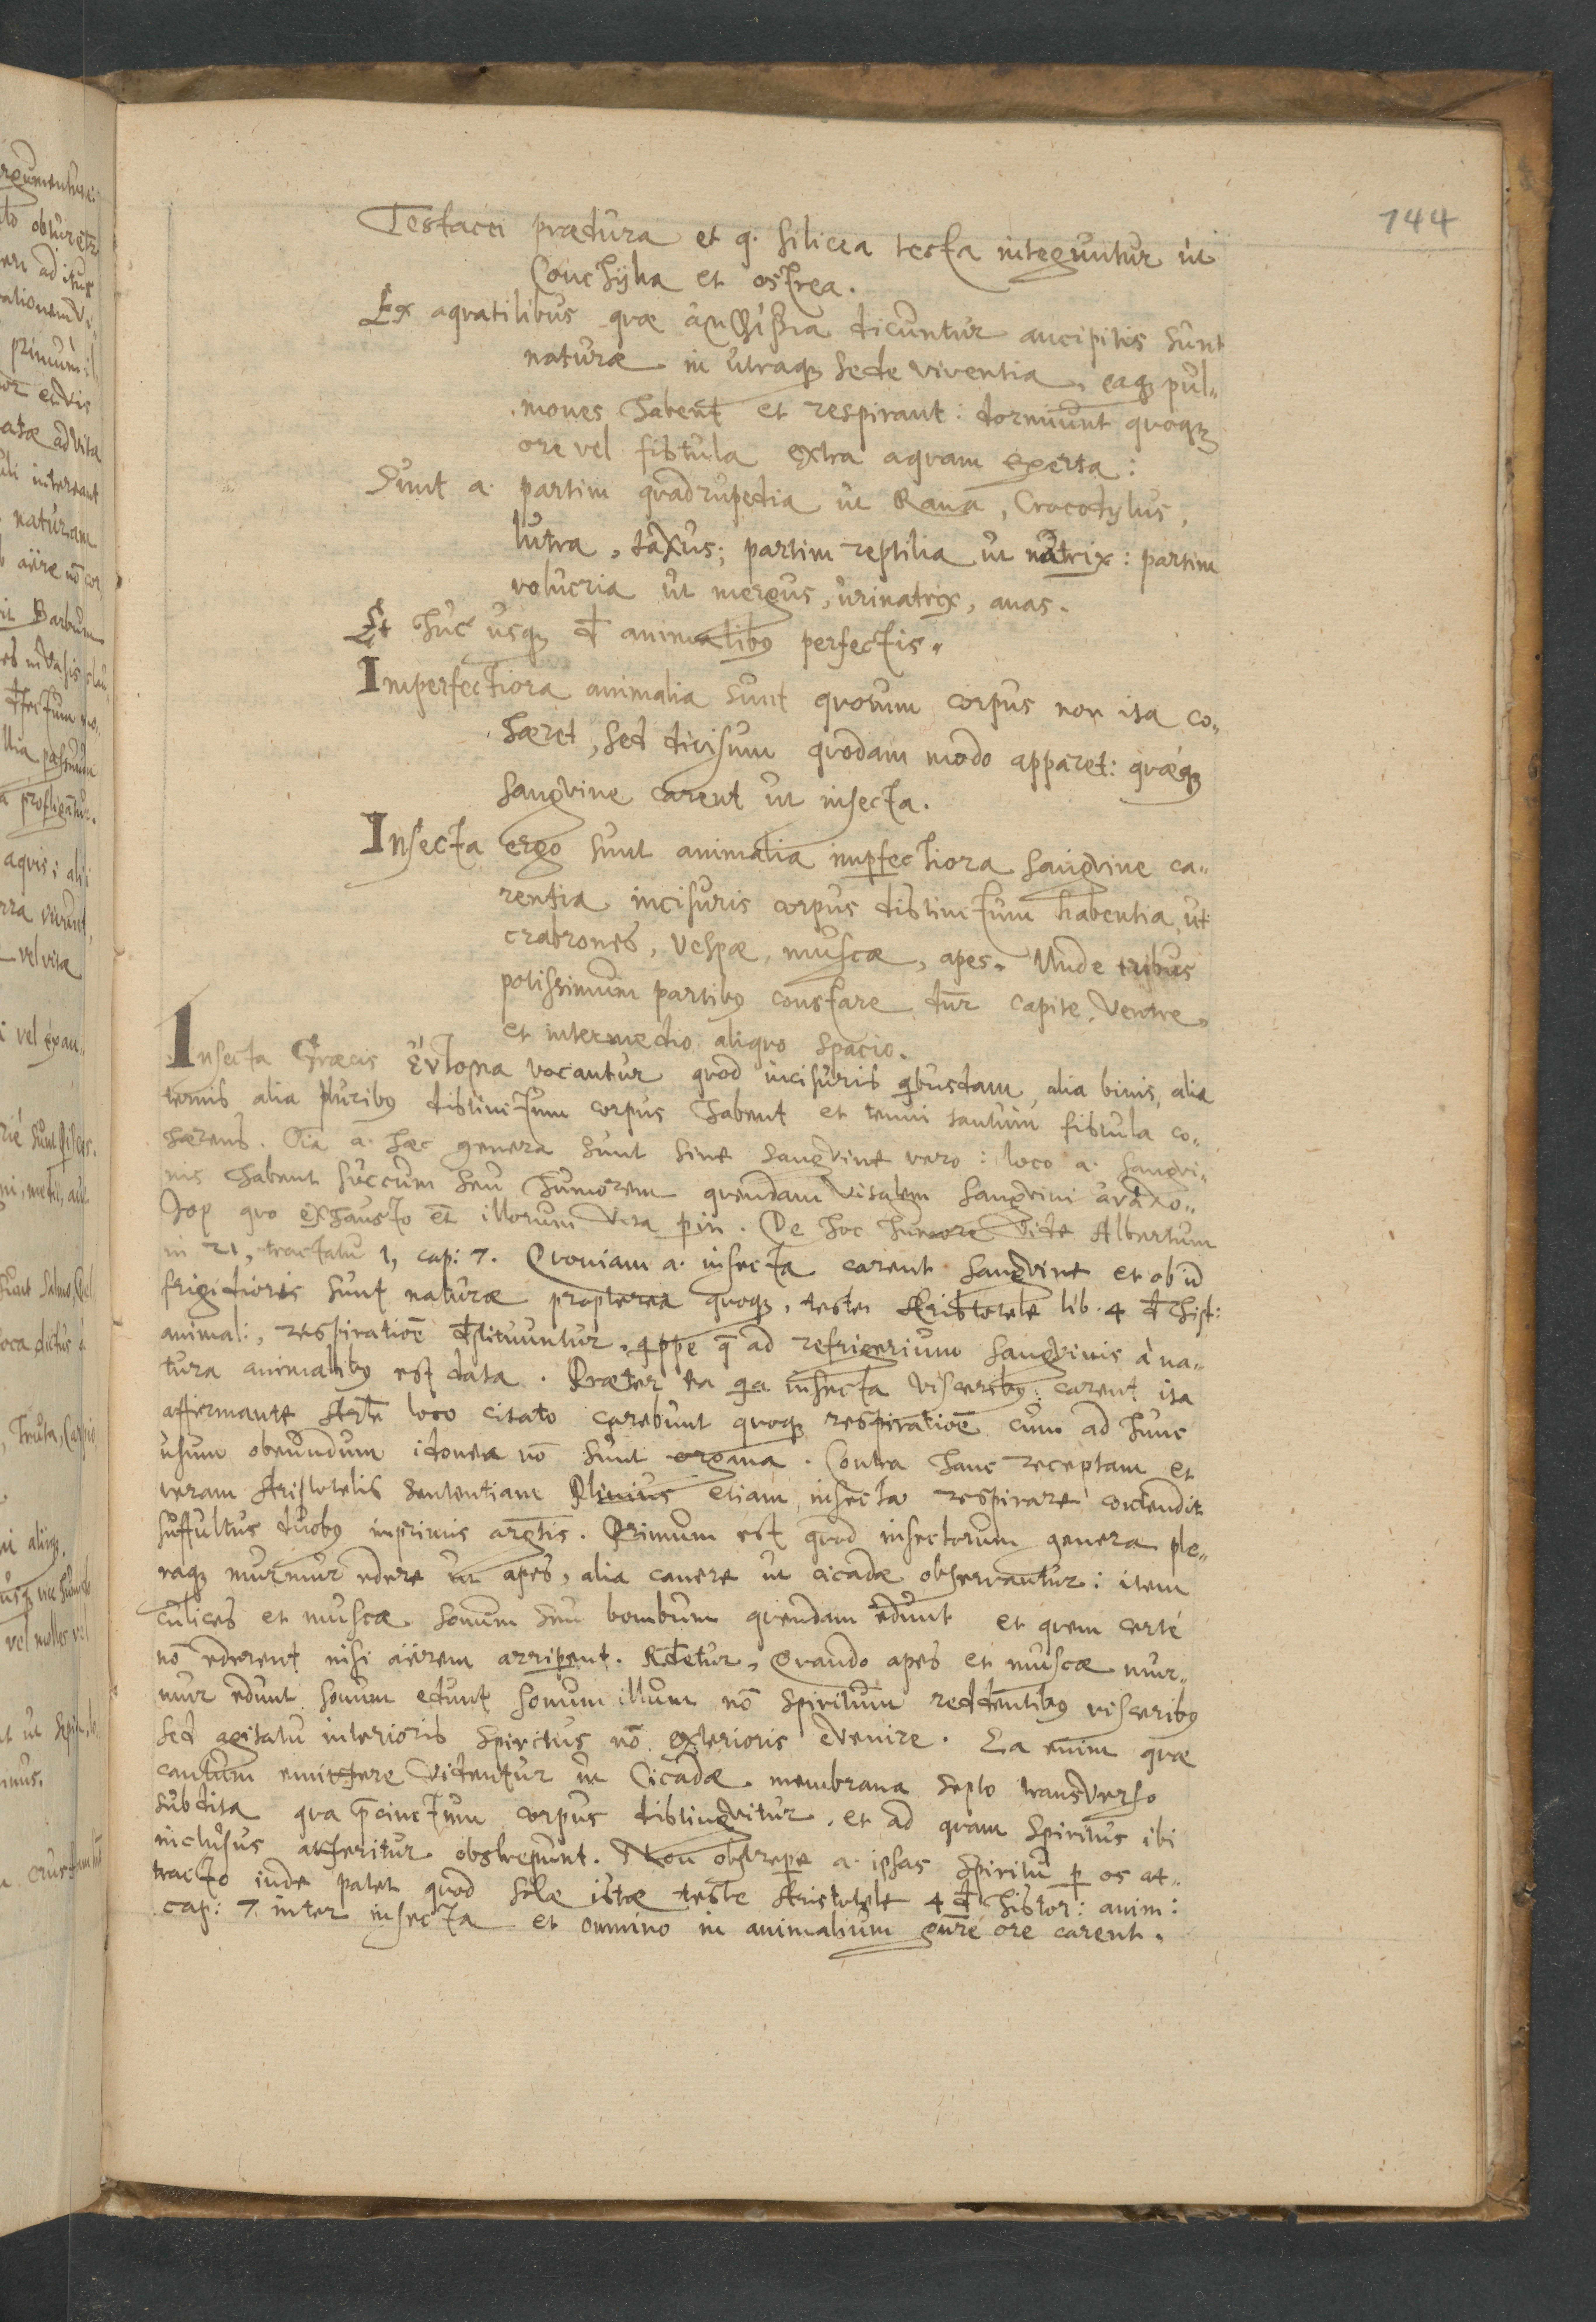 144
Testacei prædura et q. silicea testa integuntur ut
Conchÿlia et ostrea.
Ex aquatilibus quæ ἀμφίβια dicuntur ancipitis sunt
naturæ in utraq; sede viventia, eaq; pul„
mones habent et respirant: dormiunt quoq;
ore vel fistula extra aquam exerta:
Sunt a. partim quadrupedia ut Rana, Crocodylus,
lutra, taxus; partim reptilia ut natrix: partim
volucria ut mergus, urinatrix, anas.
Et huc usq; đ animalibꝰ perfectis.
Imperfectiora animalia sunt quorum corpus non ita co„
hæret, sed divisum quodam modo apparet: quæq;
sangvine carent ut insecta.
Insecta ergo sunt animalia imperfectiora sangvine ca„
rentia incisuris corpus distinctum habentia, ut
crabrones, vespæ, muscæ, apes. Unde tribus
potissimum partibꝰ constare dnr̄ capite, ventre,
et intermedio aliquo spacio.
Insecta Græcis ἔντομα vocantur quod incisuris qbusdam, alia binis, alia
ternis alia pluribꝰ distinctum corpus habent et tenui tantum fistula co„
hærens. Oīa a. hæc genera sunt sine sangvine vero: loco a. sangvi„
nis habent succum seu humorem quendam vitalem sangvini ἀνάλο„
γον quo exhausto et illorum vita perit. De hoc humore vide Albertum
in 21, tractatu 1, cap: 7. Quoniam a. insecta carent sangvine et ob id
frigidioris sunt naturæ propterea quoq;, teste Aristotele lib. 4 đ hist:
animal:, respiratiōe đstituuntur, qppe q̄ ad refrigerium sangvinis à na„
tura animalibꝰ est data. Præter ea qa insecta visceribꝰ carent ita
affirmante Arte loco citato carebunt quoq; respiratiōe cum ad hunc
usum obeundum idonea nō sunt organa. Contra hanc receptam et
veram Aristotelis sententiam Plinius etiam insecta respirare contendit
suffultus duobꝰ inprimis argtis. Primum est quod insectorum genera ple„
raq; murmur edere ut apes, alia canere ut cicadæ observantur: item
culices et muscæ sonum seu bombum quendam edunt et quem certè
nō ederent nisi aërem arriperent. Rđetur, Quando apes et muscæ mur„
mur edunt sonum edunt sonum illum nō spiritum reddentibꝰ visceribꝰ
sed agitatu interioris spiritus nō exterioris evenire. Ea enim quæ
cantum emittere videntur ut Cicadæ membrana septo transverso
subdita qua p̄cinctum corpus distingvitur, et ad quam spiritus ibi
inclusus atteritur obstrepunt. Non obstrepere a. ipsas spiritu p os at„
tracto inde patet quod solæ istæ teste Aristotele 4 đ histor: anim:
cap: 7 inter insecta et omnino in animalium gnre ore carent.